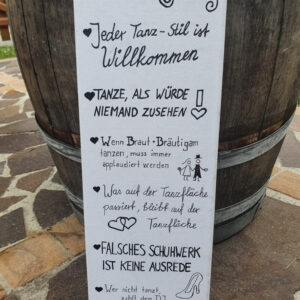 Jeder Tanz-Stil ist
Willkommen
TANZE, ALS WÜRDE
NIEMAND ZUSEHEN!
Wenn Braut + Bräutigam
tanzen, muss immer
applaudiert werden
Was auf der Tanzfläche
passiert, bleibt auf der
Tanzfläche
FALSCHES SCHUHWERK
IST KEINE AUSREDE
Wer nicht tanzt,
zahlt dem DJ